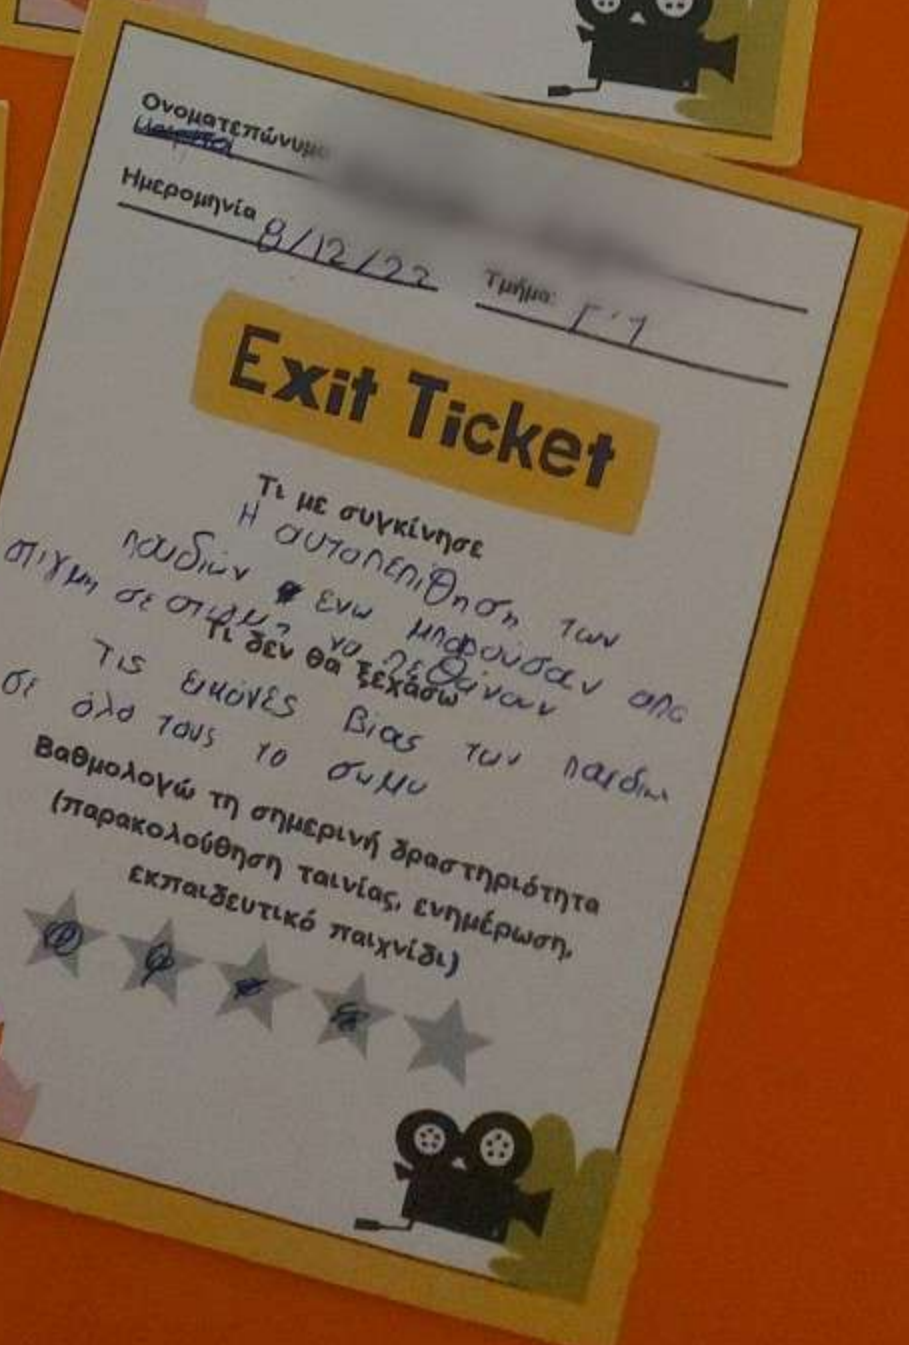 Ονοματεπώνυμο
Ημερομηνία 8/12/22 Τμήμα: Γ'1
Exit Ticket
Τι με συγκίνησε
Η αυτοπεπιθηση των
παιδιών ενω μπορούσαν απο
στιγμη σε στιγμη να πεθάνουν
Τι δεν θα ξεχάσω
Τις εικόνες βιας των παιδιων
σε όλο τους το σωμα
Βαθμολογώ τη σημερινή δραστηριότητα
(παρακολούθηση ταινίας, ενημέρωση,
εκπαιδευτικό παιχνίδι)